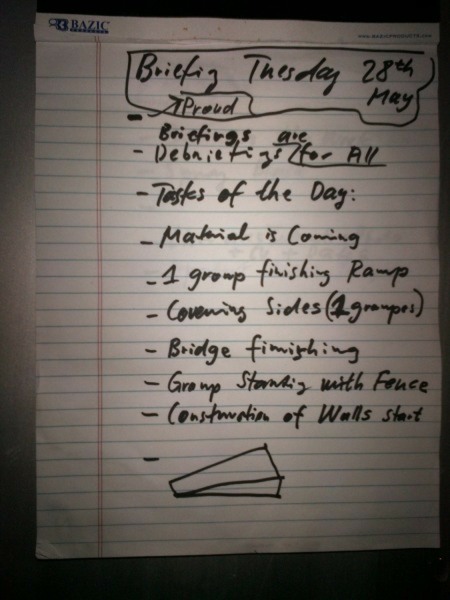 BAZIC
WWW.BAZICPRODUCTS.COM
Briefig Tuesday 28th
May
- Proud
Briefings are
- Debriefings for All
- Tasks of the Day:
- Material is Coming
- 1 group finishing Ramp
- Covering Sides (1 groupes)
- Bridge finishing
- Group Starting with Fence
- Construction of Walls start
-